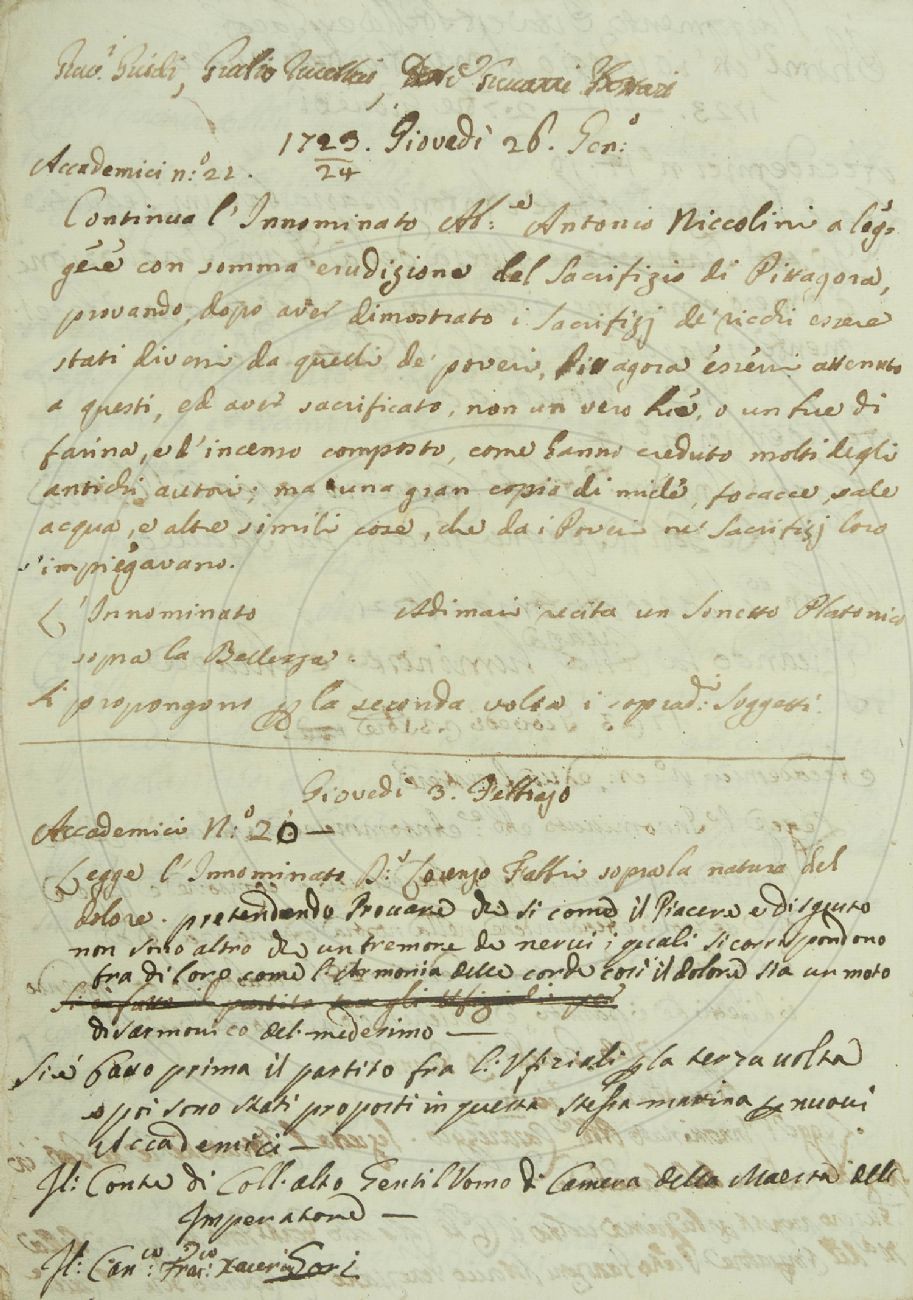 Giulio Rucellai,
1723/24. Giovedì 26. Gen:o
Accademici n:o 22.
Continua l'Innominato Ab:e Antonio Niccolini a leg-
gere con somma erudizione del Sacrifizio di Pittagora,
provando, dopo aver dimostrato i Sacrifizj de' ricchi essere
stati diversi da quelli de' poveri, Pittagora essersi attenuto
a questi, ed aver sacrificato, non un vero bue, o un bue di
farina, e d'incenso composto, come hanno creduto molti degli
antichi autori; ma una gran copia di miele, focacce, sale
acqua, e altre simili cose, che da i Poveri ne' Sacrifizj loro
s'impiegavano.
L'Innominato Adimari recita un Sonetto Platonico
sopra la Bellezza.
Si propongono p la seconda volta i soprad:i Soggetti.
Giovedì 3. Febbrajo
Accademici N:o 20 —
Legge l'Innominato D:r Lorenzo Fabbri sopra la natura del
dolore. pretendendo Provare che si come il Piacere e disgusto
non sono altro che un tremore de nervi i quali si corrispondono
tra di loro come l'Armonia delle corde così il dolore sia un moto
disarmonico del medesimo —
Si è fatto prima il partito fra l'Uffiziali p la terza volta
e poi sono stati proposti in questa stessa mattina p nuovi
Accademici —
Il: Conte di Coll'alto Gentil Uomo di Camera della Maestà dell
Imperatore —
Il: Can:co Fran:co Xaverio Gori